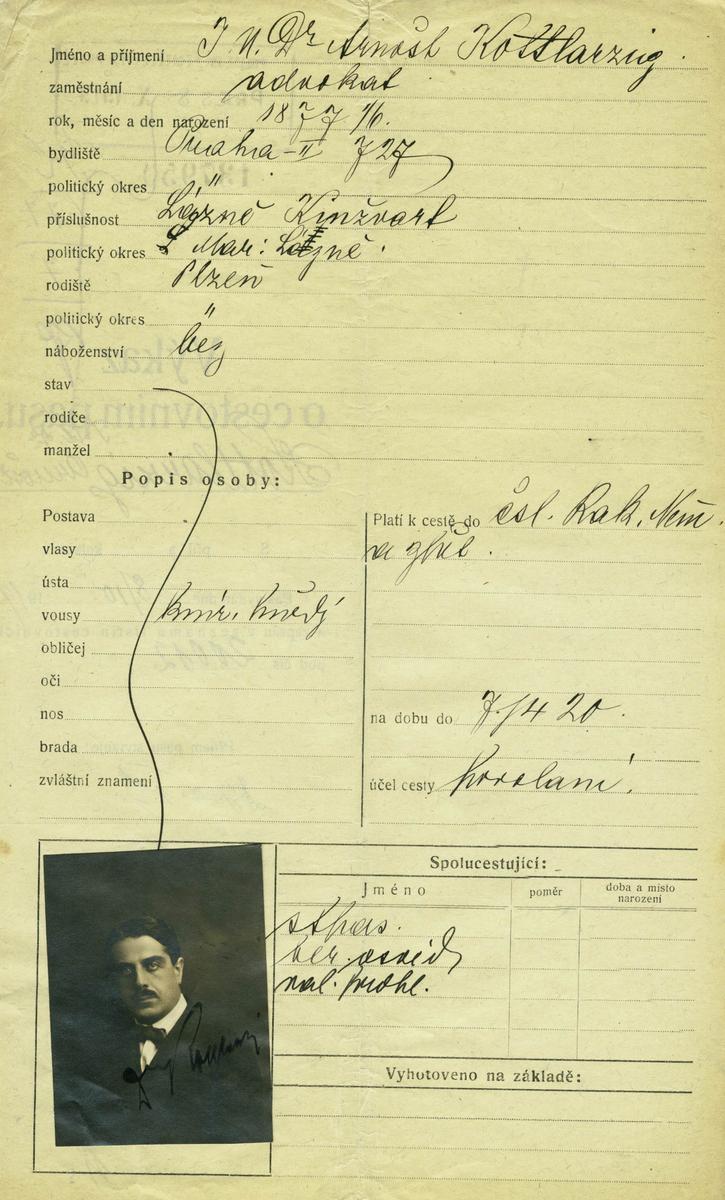 Jméno a příjmení J U. Dr Arnošt Kottlarzig
zaměstnání advokat
rok, měsíc a den narození 1877 1/6.
bydliště Praha-II 727
politický okres "
příslušnost Lázně Kinžvart
politický okres Mar: Lázně.
rodiště Plzeň
politický okres "
náboženství bez
stav
rodiče
manžel
Popis osoby:
Postava
vlasy
ústa
vousy knír. hnědý
obličej
oči
nos
brada
zvláštní znamení
Platí k cestě do čsl. Rak. Něm.
a zpět.
na dobu do 7./4 20.
účel cesty
Spolucestující:
Jméno poměr doba a místo narození
st. pas.
ber. osvěd
Vyhotoveno na základě: